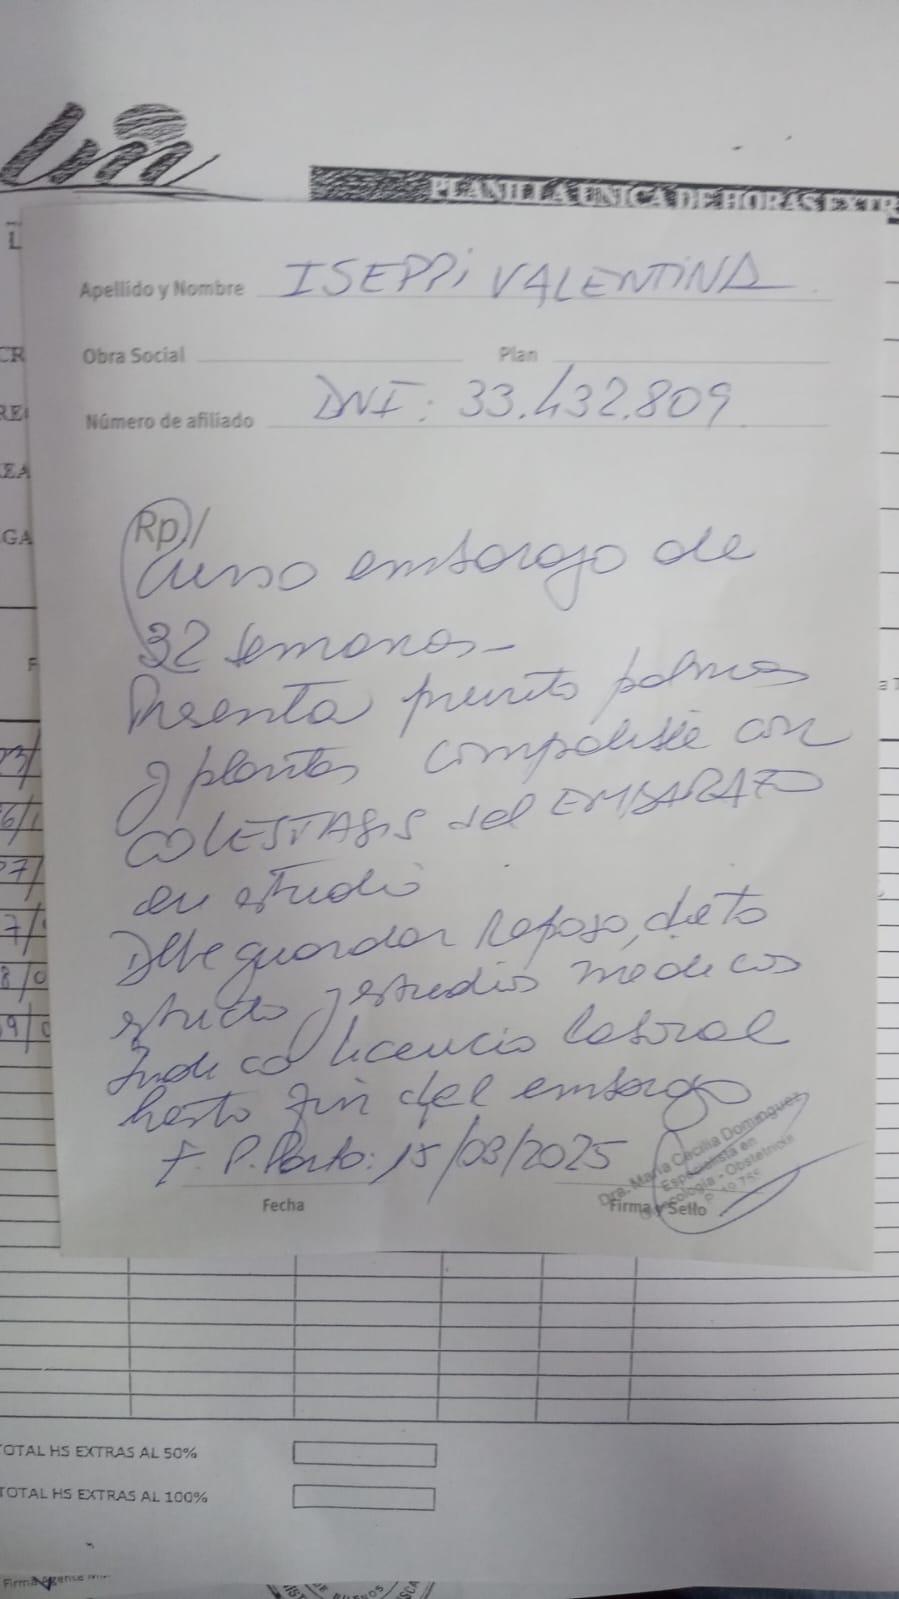 Lm
PLANILLA UNICA DE HORAS EXTR
Apellido y Nombre ISEPPI VALENTINA
Obra Social Plan
Número de afiliado DNI: 33.432.809
Rp/
Curso embarazo de
32 semanas-
Presenta prurito palmas
y plantas compatible con
COLESTASIS del EMBARAZO
en estudio
Debe guardar Reposo, dieta
estricta y estudios médicos
Indico licencia laboral
hasta fin del embarazo
F. P. Parto: 15/03/2025
Fecha
Dra. María Cecilia Dominguez
Especialista en
Ginecología - Obstetricia
Firma y Sello
TOTAL HS EXTRAS AL 50%
TOTAL HS EXTRAS AL 100%
Firma Agente